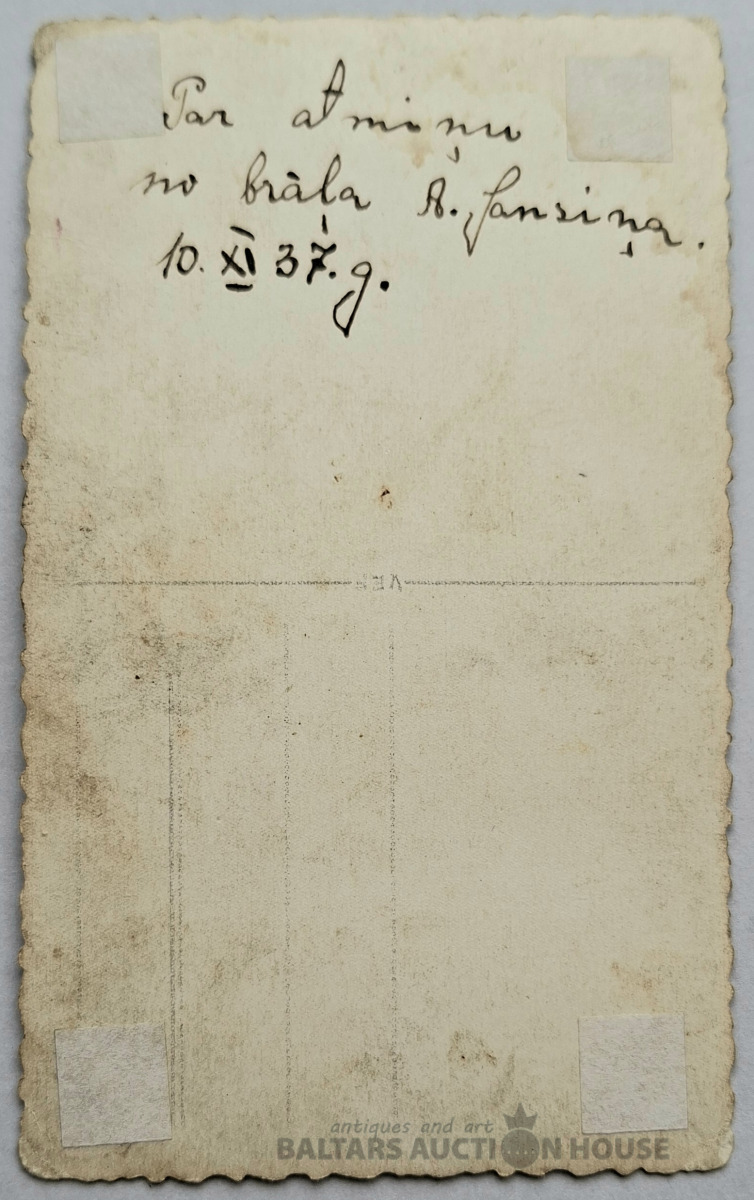 Par atmiņu
no brāļa A. Jansiņa.
10. XI 37. g.
VEF
antiques and art
BALTARS AUCTION HOUSE